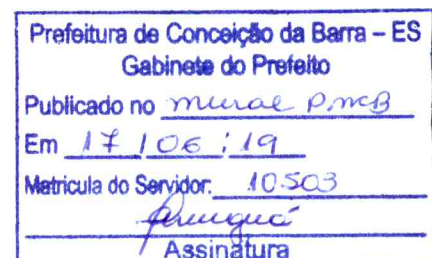 Prefeitura de Conceição da Barra – ES
Gabinete do Prefeito
Publicado no mural P.M.C.B
Em 17 / 06 / 19
Matricula do Servidor: 10.503
Assinatura